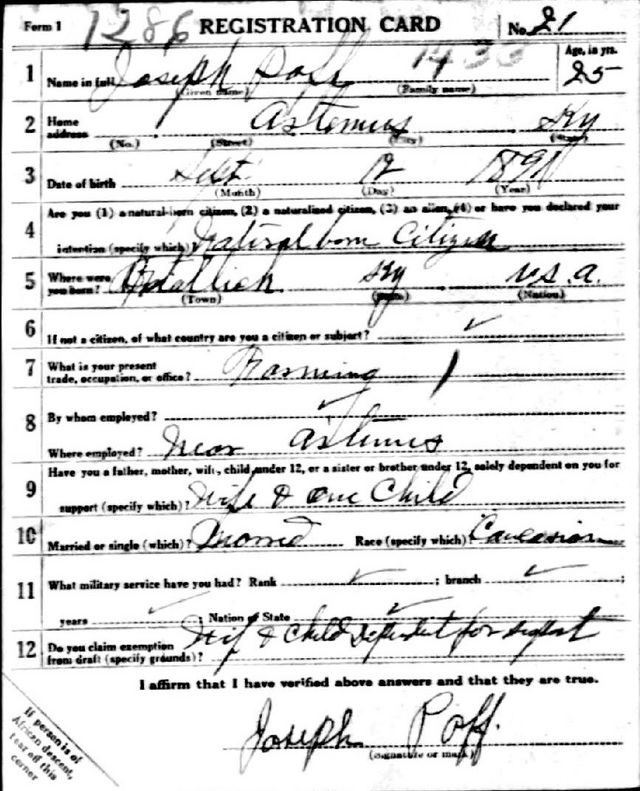 Form 1 7286 REGISTRATION CARD No. 21
1 Name in full Joseph Poff Age, in yrs. 25
(Given name) (Family name)
2 Home address Artemus Ky
(No.) (Street) (City) (State)
3 Date of birth Sept 12 1891
(Month) (Day) (Year)
4 Are you (1) a natural-born citizen, (2) a naturalized citizen, (3) an alien, (4) or have you declared your
intention (specify which)? Natural born Citizen
5 Where were you born? Ky U.S.A.
(Town) (State) (Nation)
6 If not a citizen, of what country are you a citizen or subject? ✓
7 What is your present trade, occupation, or office? Farming
8 By whom employed? ✓
Where employed? Near Artemus
9 Have you a father, mother, wife, child under 12, or a sister or brother under 12, solely dependent on you for
support (specify which)? Wife & One Child
10 Married or single (which)? Married Race (specify which)? Caucasian
11 What military service have you had? Rank ✓ ; branch ✓ ;
years ✓ ; Nation or State ✓
12 Do you claim exemption from draft (specify grounds)? Wife & Child Dependent for support
I affirm that I have verified above answers and that they are true.
Joseph Poff.
(Signature or mark)
If person is of
African descent,
tear off this
corner